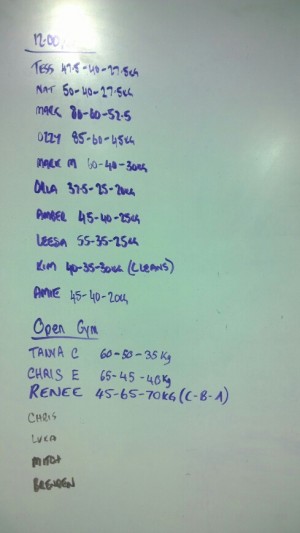 12:00
TESS 47.5-40-27.5KG
NAT 50-40-27.5KG
MARK 80-60-52.5
OZZY 85-60-45KG
MARK M 60-40-30KG
ORLA 37.5-25-20KG
AMBER 45-40-25KG
LEESA 55-35-25KG
KIM 40-35-30KG (CLEANS)
AMIE 45-40-20KG
Open Gym
TANYA C 60-50-35Kg
CHRIS E 65-45-40Kg
RENEE 45-65-70KG (C-B-A)
CHRIS
LUKA
MITCH
BRENDEN